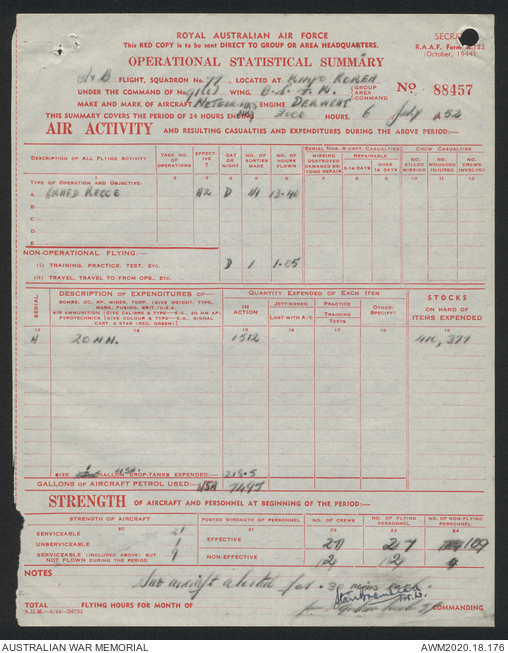 ROYAL AUSTRALIAN AIR FORCE
This RED COPY is to be sent DIRECT TO GROUP OR AREA HEADQUARTERS.
SECRET
R.A.A.F. Form A.122
(October, 1944)
OPERATIONAL STATISTICAL SUMMARY
A & B FLIGHT, SQUADRON No. 77, LOCATED AT KIMPO KOREA
UNDER THE COMMAND OF No. 91(C) WING, GROUP AREA COMMAND
No. 88457
MAKE AND MARK OF AIRCRAFT METEOR MK8 ENGINE DERWENT
THIS SUMMARY COVERS THE PERIOD OF 24 HOURS ENDING 2000 HOURS, 6 July 1952
AIR ACTIVITY AND RESULTING CASUALTIES AND EXPENDITURES DURING THE ABOVE PERIOD:—
DESCRIPTION OF ALL FLYING ACTIVITY
TASK NO. OF OPERATIONS
EFFECTIVE ?
DAY OR NIGHT
NO. OF SORTIES MADE
NO. OF HOURS FLOWN
SERIAL NOS. A'CRFT. CASUALTIES
MISSING DESTROYED DAMAGED BEYOND REPAIR
REPAIRABLE
2-14 DAYS
OVER 14 DAYS
CREW CASUALTIES
NO. KILLED MISSING
NO. WOUNDED INJURED
NO. CREWS INVOLVED
1 2 3 4 5 6 7 8 9 10 11 12
TYPE OF OPERATION AND OBJECTIVE
A ARMED RECCE D 14 13·40
B
C
D
E
NON-OPERATIONAL FLYING:—
(i) TRAINING, PRACTICE, TEST, ETC. D 1 1·05
(ii) TRAVEL, TRAVEL TO/FROM OPS., ETC.
SERIAL
DESCRIPTION OF EXPENDITURES OF—
BOMBS, DC, RP, MINES, TORP. (GIVE WEIGHT, TYPE, MARK, FUSING, BRIT./U.S.A.)
AIR AMMUNITION (GIVE CALIBRE & TYPE—E.G., 20 MM AP)
PYROTECHNICS (GIVE COLOUR & TYPE—E.G., SIGNAL CART. 2 STAR (RED, GREEN))
QUANTITY EXPENDED OF EACH ITEM
IN ACTION
JETTISONED
LOST WITH A/C
PRACTICE
TRAINING TESTS
OTHER: SPECIFY?
STOCKS
ON HAND OF ITEMS EXPENDED
13 14 15 16 17 18 19
A 20 MM. 1512
SIZE USA. GALLON DROP-TANKS EXPENDED
GALLONS OF AIRCRAFT PETROL USED: USA
STRENGTH OF AIRCRAFT AND PERSONNEL AT BEGINNING OF THE PERIOD:—
STRENGTH OF AIRCRAFT
POSTED STRENGTH OF PERSONNEL
NO. OF CREWS
NO. OF FLYING PERSONNEL
NO. OF NON-FLYING PERSONNEL
20 21 22 23 24
SERVICEABLE 21
UNSERVICEABLE 1
EFFECTIVE 27 27 109
SERVICEABLE (INCLUDED ABOVE) BUT NOT FLOWN DURING THE PERIOD
NON-EFFECTIVE 12 12
NOTES
Two aircraft aborted for
TOTAL FLYING HOURS FOR MONTH OF
COMMANDING
AUSTRALIAN WAR MEMORIAL
AWM2020.18.176